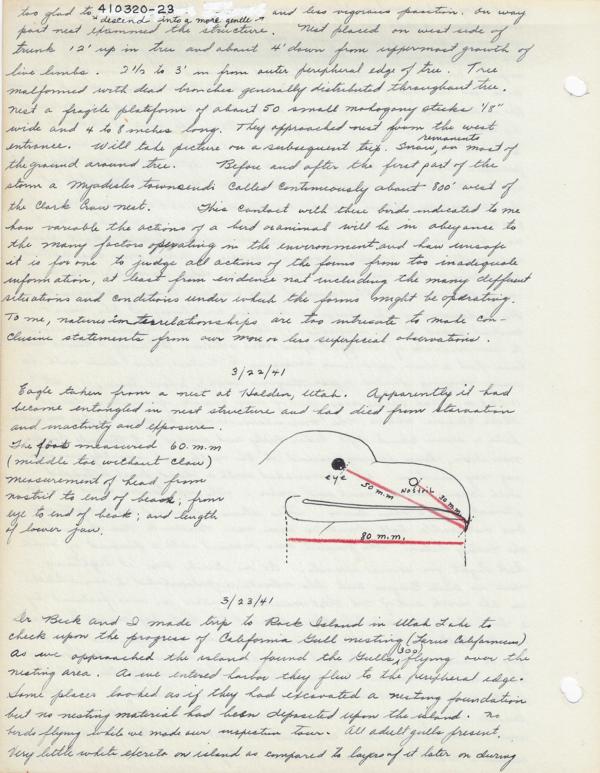 too glad to descend into a more gentle and less vigorous position. On way
410320-23
past nest examined the structure. Nest placed on west side of
trunk 12' up in tree and about 4' down from uppermost growth of
live limbs. 2 1/2 to 3' in from outer peripheral edge of tree. Tree
malformed with dead branches generally distributed throughout tree.
Nest a fragile platform of about 50 small mahogany sticks 1/8"
wide and 4 to 8 inches long. They approached nest from the west
entrance. Will take picture on a subsequent trip. Snow remanents on most of
the ground around tree. Before and after the first part of the
storm a Myadestes townsendi called continuously about 800' west of
the Clark Crow nest. This contact with these birds indicated to me
how variable the actions of a bird or animal will be in abeyance to
the many factors operating in the environment and how unsafe
it is for one to judge all actions of the forms from too inadequate
information, at least from evidence not including the many different
situations and conditions under which the forms might be operating.
To me, natures interrelationships are too intricate to make con-
clusive statements from our more or less superficial observations.
3/22/41
Eagle taken from a nest at Holden, Utah. Apparently it had
become entangled in nest structure and had died from starvation
and inactivity and exposure.
The foot measured 60 m.m
(middle toe without claw)
measurement of head from
nostril to end of beak; from
eye to end of beak; and length
of lower jaw.
eye
Nostril
50 m.m
30 m.m
80 m.m.
3/23/41
Dr Beck and I made trip to Rock Island in Utah Lake to
check upon the progress of California Gull nesting (Larus Californicus)
As we approached the island found the Gulls (300) flying over the
nesting area. As we entered harbor they flew to the peripheral edge.
Some places looked as if they had excavated a nesting foundation
but no nesting material had been deposited upon the island. No
birds flying while we made our inspection tour. All adult gulls present.
Very little white excreta on island as compared to layers of it later on during